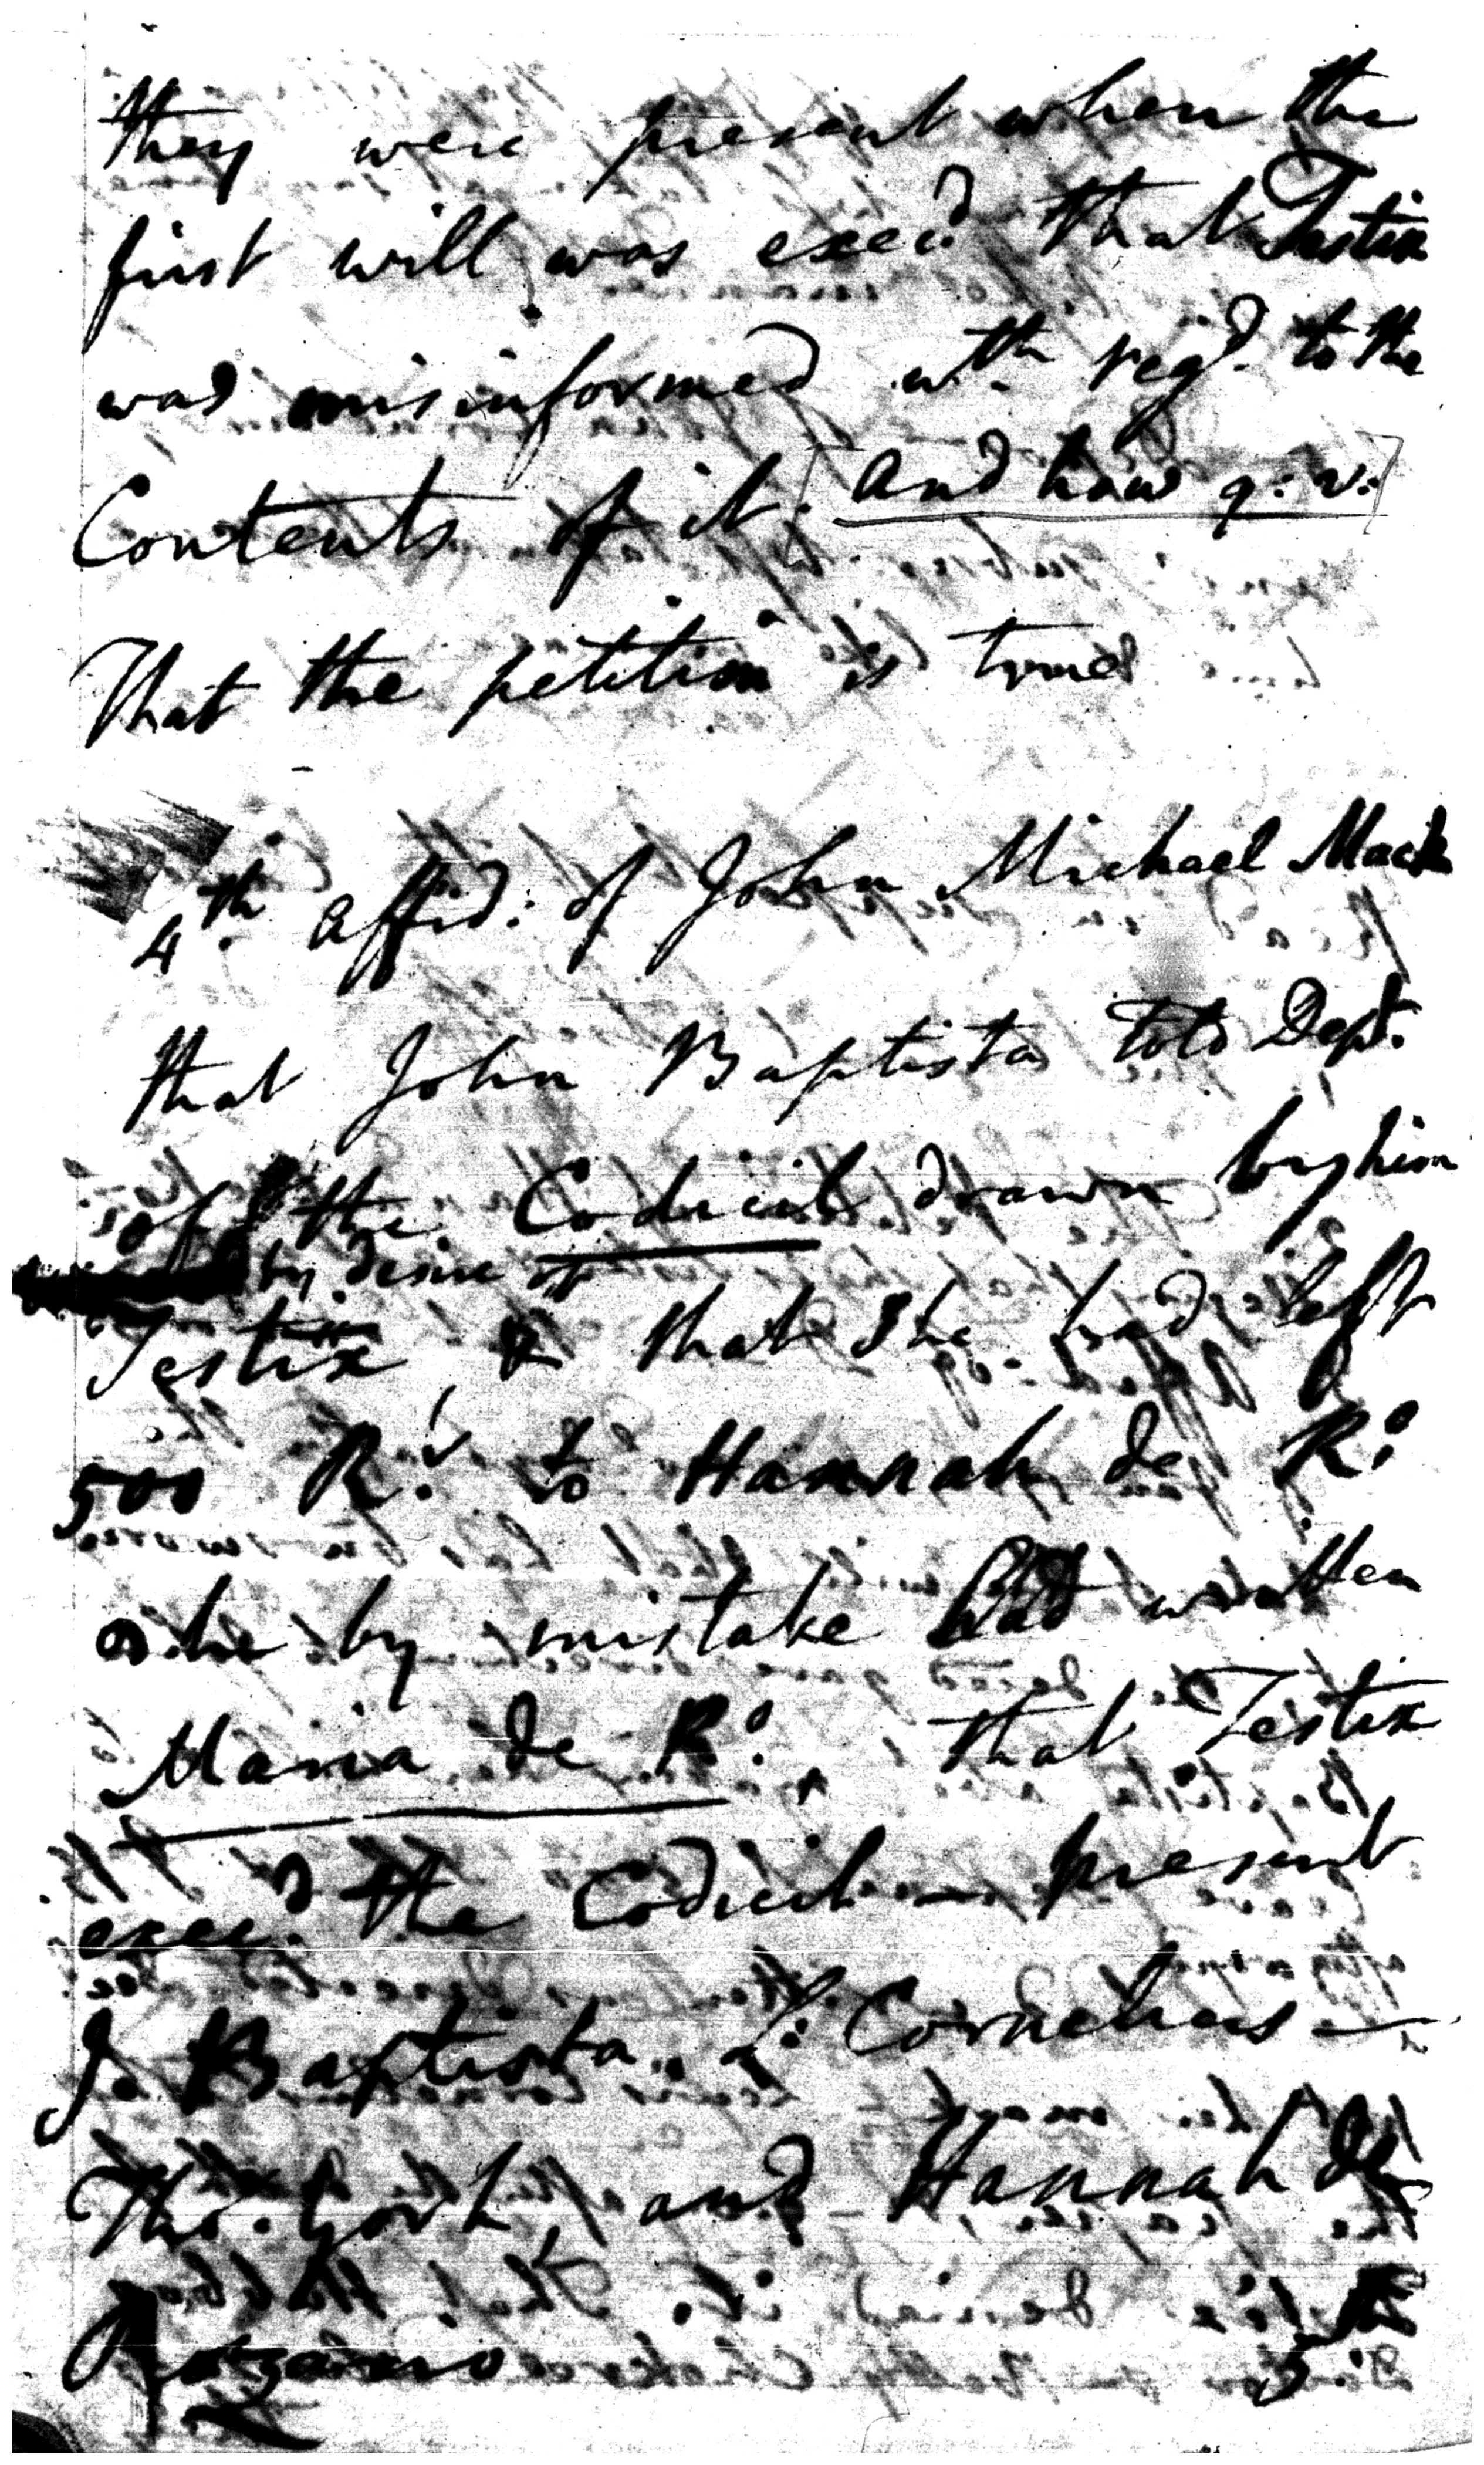 they were present when the
first will was exec:d that Testix
was misinformed wth reg:d to the
Contents of it. [and how q: v:]
That the petition is true
4th affid: of John Michael Mack
that John Baptista told Dept.
of the Codicil drawn by him
by desire of
Testix & that She had left
500 R:s to Hannah de R:o
he by mistake had written
Maria de R:o that Testix
exec:d the Codicil — present
J. Baptista. L: Cornelius —
Tho:s and Hannah de
Rozario
5